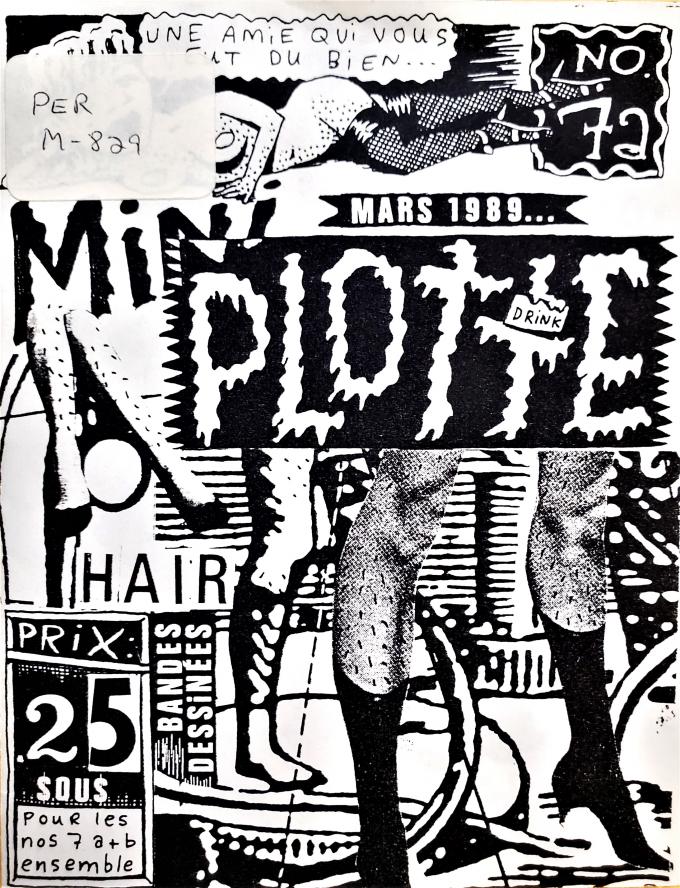 UNE AMiE QUi VOUS
UT DU BiEN...
NO.
7a
PER
M-829
MARS 1989...
MiNi
PLOTTE
DRiNK
HAIR
PRiX:
.25
SOUS
POUR les
nos 7 a+b
ensemble
BANDES
DESSiNÉES